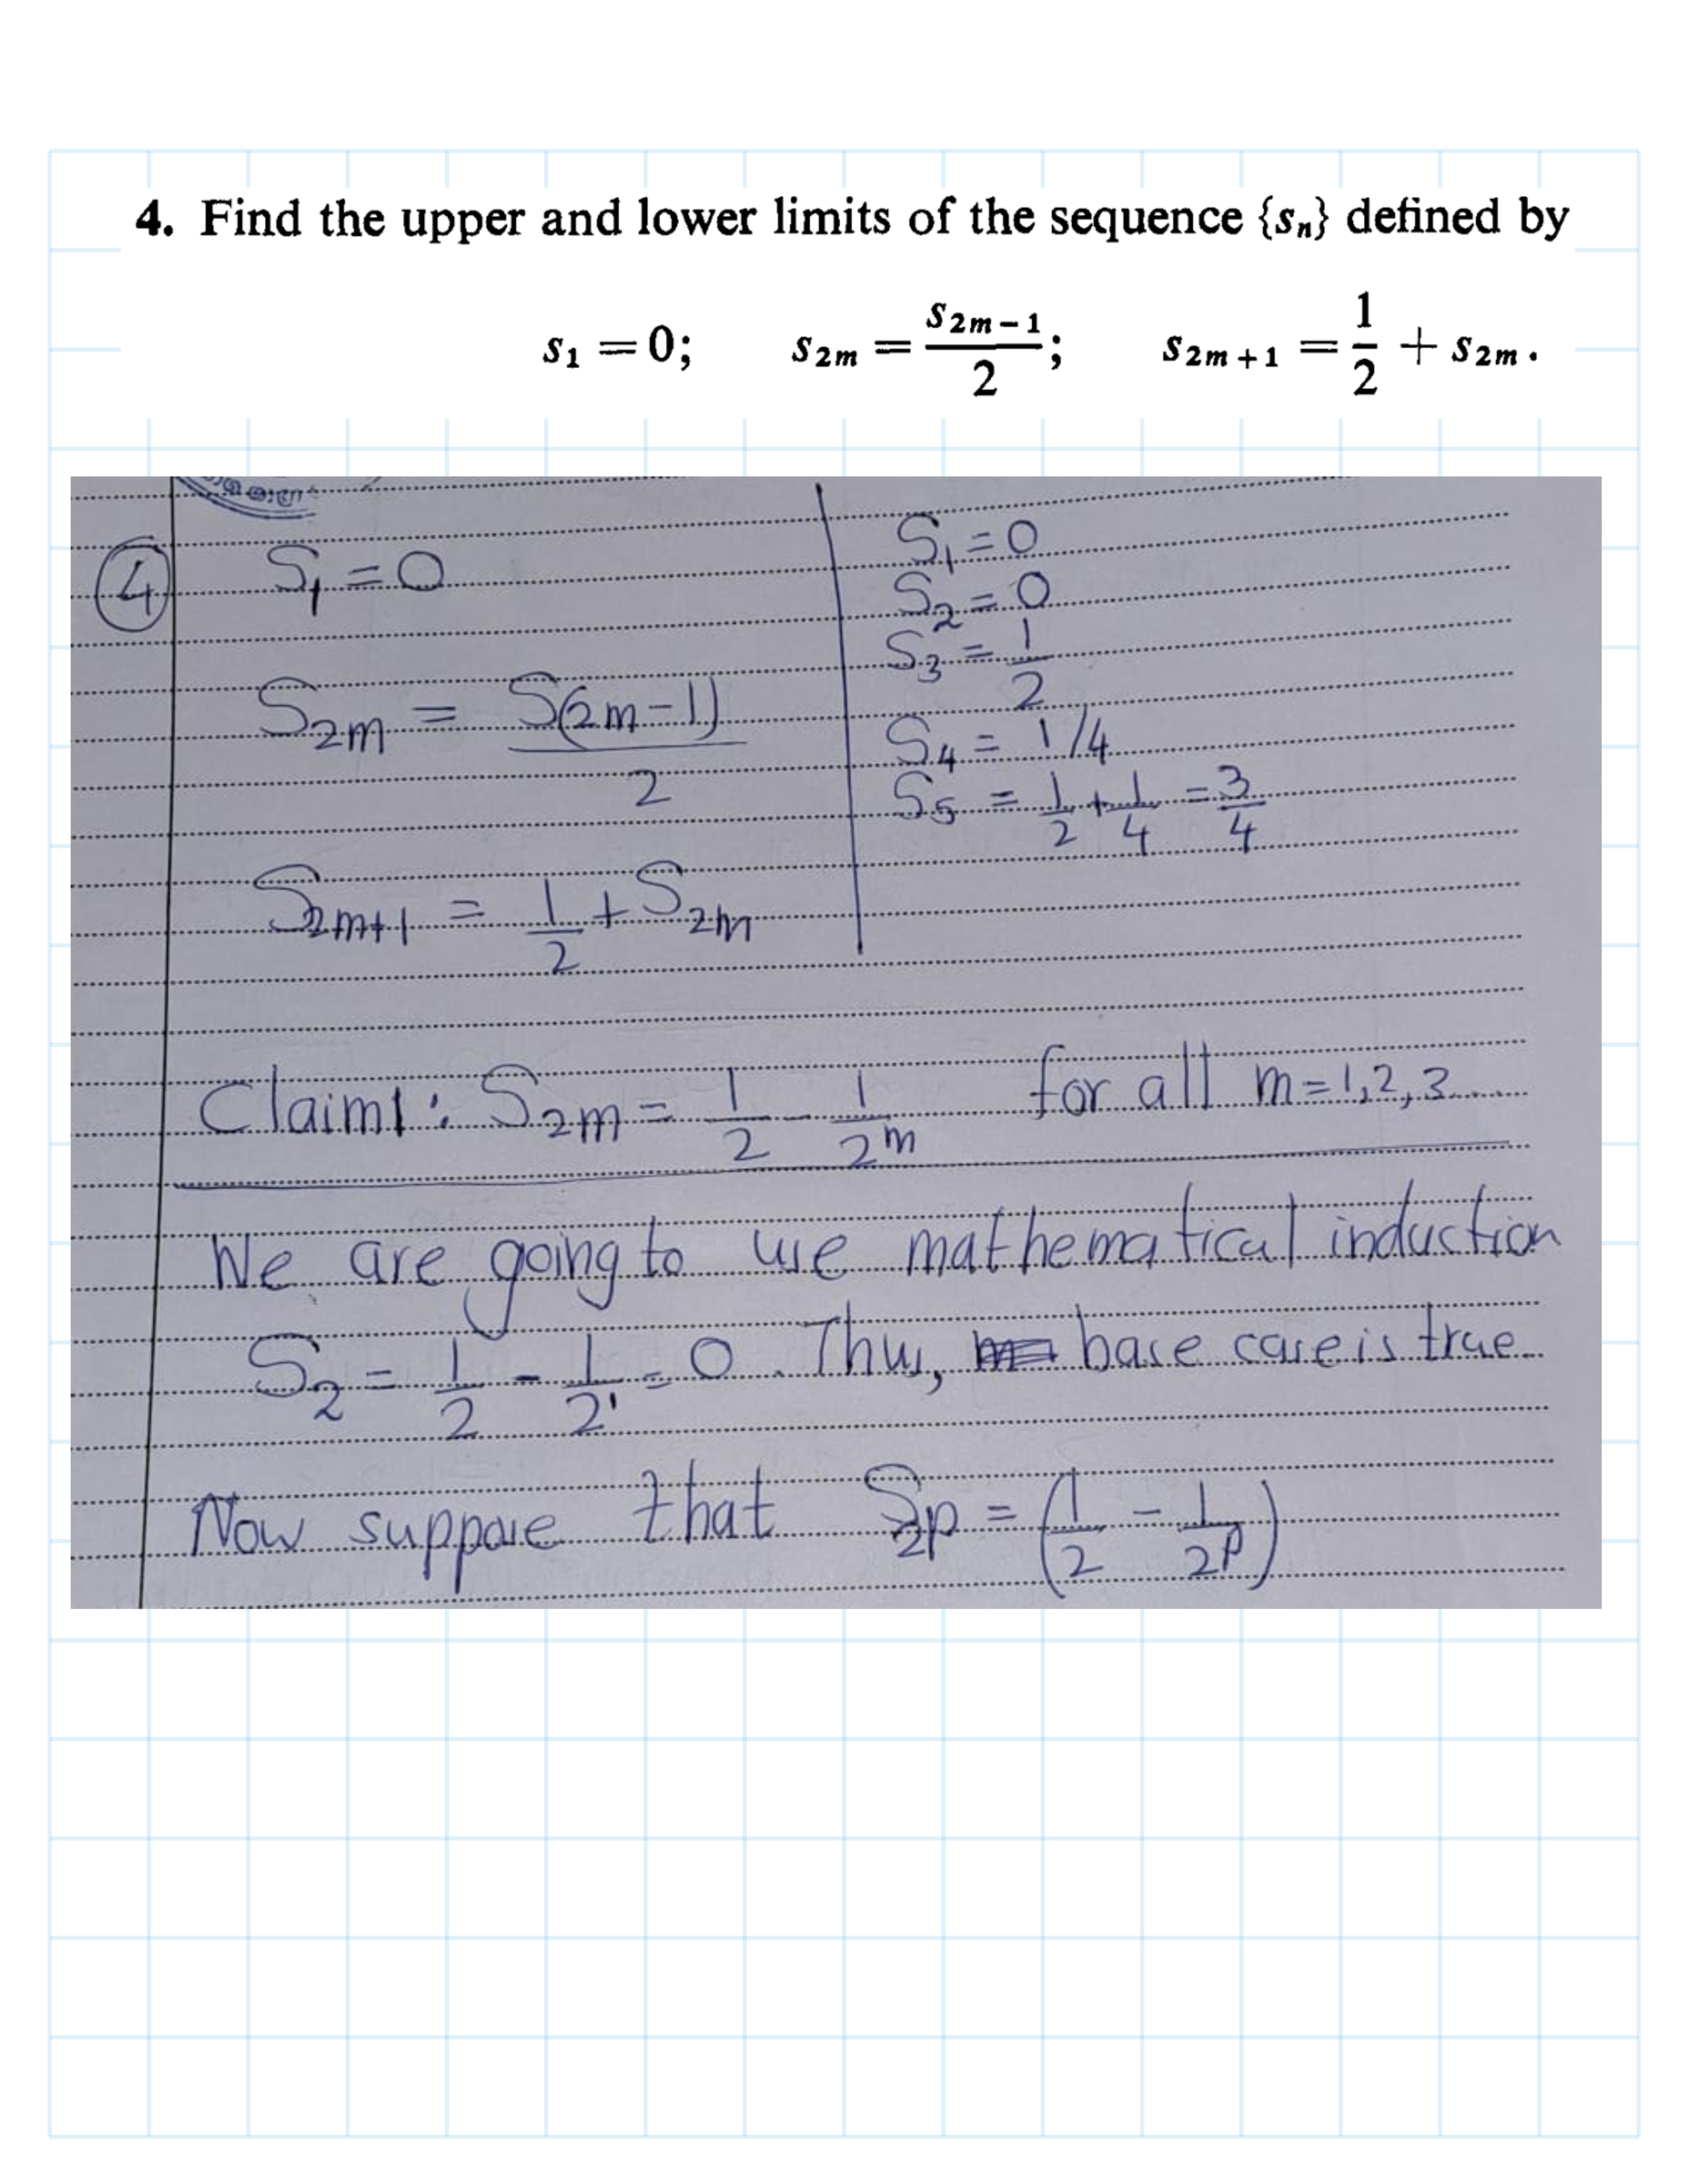 4. Find the upper and lower limits of the sequence {sₙ} defined by
s₁ = 0; s₂ₘ = s₂ₘ₋₁/2; s₂ₘ₊₁ = 1/2 + s₂ₘ.
④ S₁ = 0
S₂ₘ = S(2m-1)/2
S₂ₘ₊₁ = 1/2 + S₂ₘ
S₁ = 0
S₂ = 0
S₃ = 1/2
S₄ = 1/4
S₅ = 1/2 + 1/4 = 3/4
Claim1: S₂ₘ = 1/2 - 1/2^m for all m = 1,2,3....
We are going to use mathematical induction
S₂ = 1/2 - 1/2^1 = 0. Thus, base case is true.
Now suppose that S₂ₚ = (1/2 - 1/2^p)